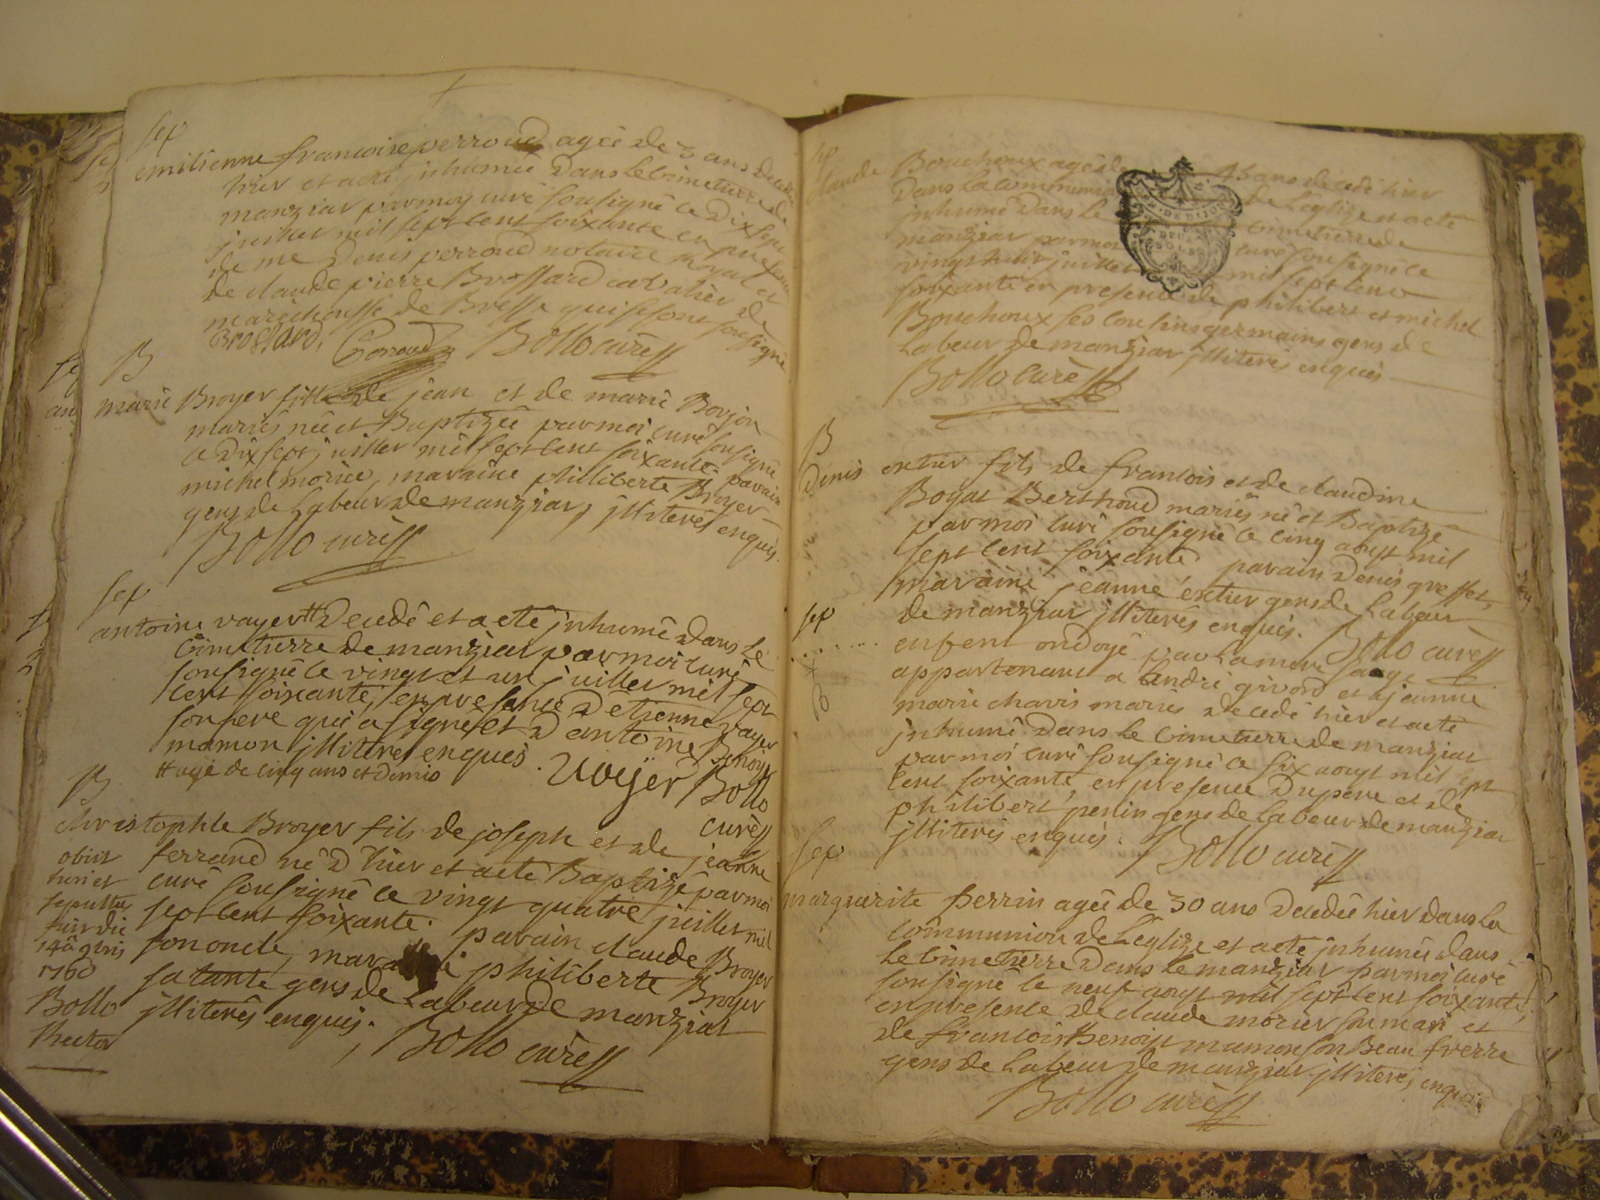 sep
emilienne francoise perroud agée de 3 ans decedée
hier et a eté inhumée dans le cimetierre de
manziat par moy curé sousigné le dix sept
juillet mil sept cent soixante en presence
de me Denis perroud notaire royal et
de claude pierre Brossard cavalier de
marechaussée de Bresse qui se sont sousigné
Brossard. Perroud Bollo curé
B
marie Broyer fille de jean et de marie Borjon
mariés née et Baptizée par moi curé sousigné
ce dix sept juillet mil sept cent soixante parain
michel morice, maraine philliberte Broyer
gens de Labeur de manziat, jlliterés enquis.
Bollo curé
sep
antoine vayer # Decedé et a eté jnhumé dans le
Cimetierre de manziat par moi curé
sousigné le vingt et un juillet mil sept
cent soixante, en presence d'etienne vayer
son pere qui a signé et d'antoine Benoist
mamon jlliteré enquis. Voÿer Bollo
# agé de cinq ans et demis
curé
B
christophle Broyer fils de joseph et de jeanne
ferrand né d'hier et a eté Baptizé par moi
curé sousigné ce vingt quatre juillet mil
sept cent soixante. parain claude Broyer
son oncle, maraine philiberte Broyer
sa tante gens de Labeur de manziat
jlliterés enquis. Bollo curé
obiit
heri et
sepultus
fuit die
14â 9bris
1760
Bollo
Rector
sep
claude Bouchoux agé de 45 ans decedé hier
Dans la Communion de L'eglize et a eté
jnhumé Dans le cimetierre de
manziat par moi curé sousigné le
vingt huit juillet mil sept cent
soixante en presence de philibert et michel
Bouchoux ses cousins germains gens de
Labeur de manziat jlliterés enquis
Bollo Curé
B
Denis entier fils de francois et de claudine
Boyat Berthoud mariés né et Baptizé
par moi curé sousigné le cinq aoust mil
sept cent soixante parain Denis greffet,
maraine jeanne entier gens de Labeur
de manziat jlliterés enquis. Bollo curé
sep
enfent ondoyé par La mere sage
appartenant a andré givord et a jeanne
marie chavis mariés decedé hier et a eté
jnhumé dans le cimetierre de manziat
par moi curé sousigné ce six aoust mil sept
cent soixante, en presence du pere et de
philibert perlin gens de Labeur de manziat
jlliterés enquis. Bollo curé
Sep
marguerite perrin agée de 30 ans decedée hier dans la
communion de L'eglize et a eté jnhumée dans
le cimetierre dans le manziat par moi curé
sousigné le neuf aoust mil sept cent soixante,
en presence de claude morier son mari et
de francois Benoist mamon son Beau frerre
gens de Labeur de manziat jlliterés enquis.
Bollo curé